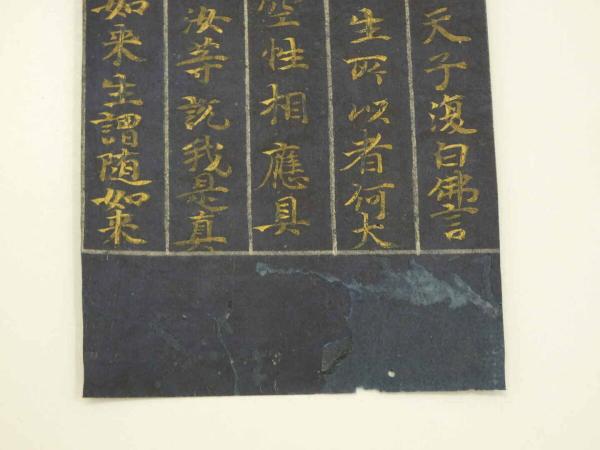 天子復白佛言
生所以者何大
空性相應具
汝等說我是真
如来生謂随如来